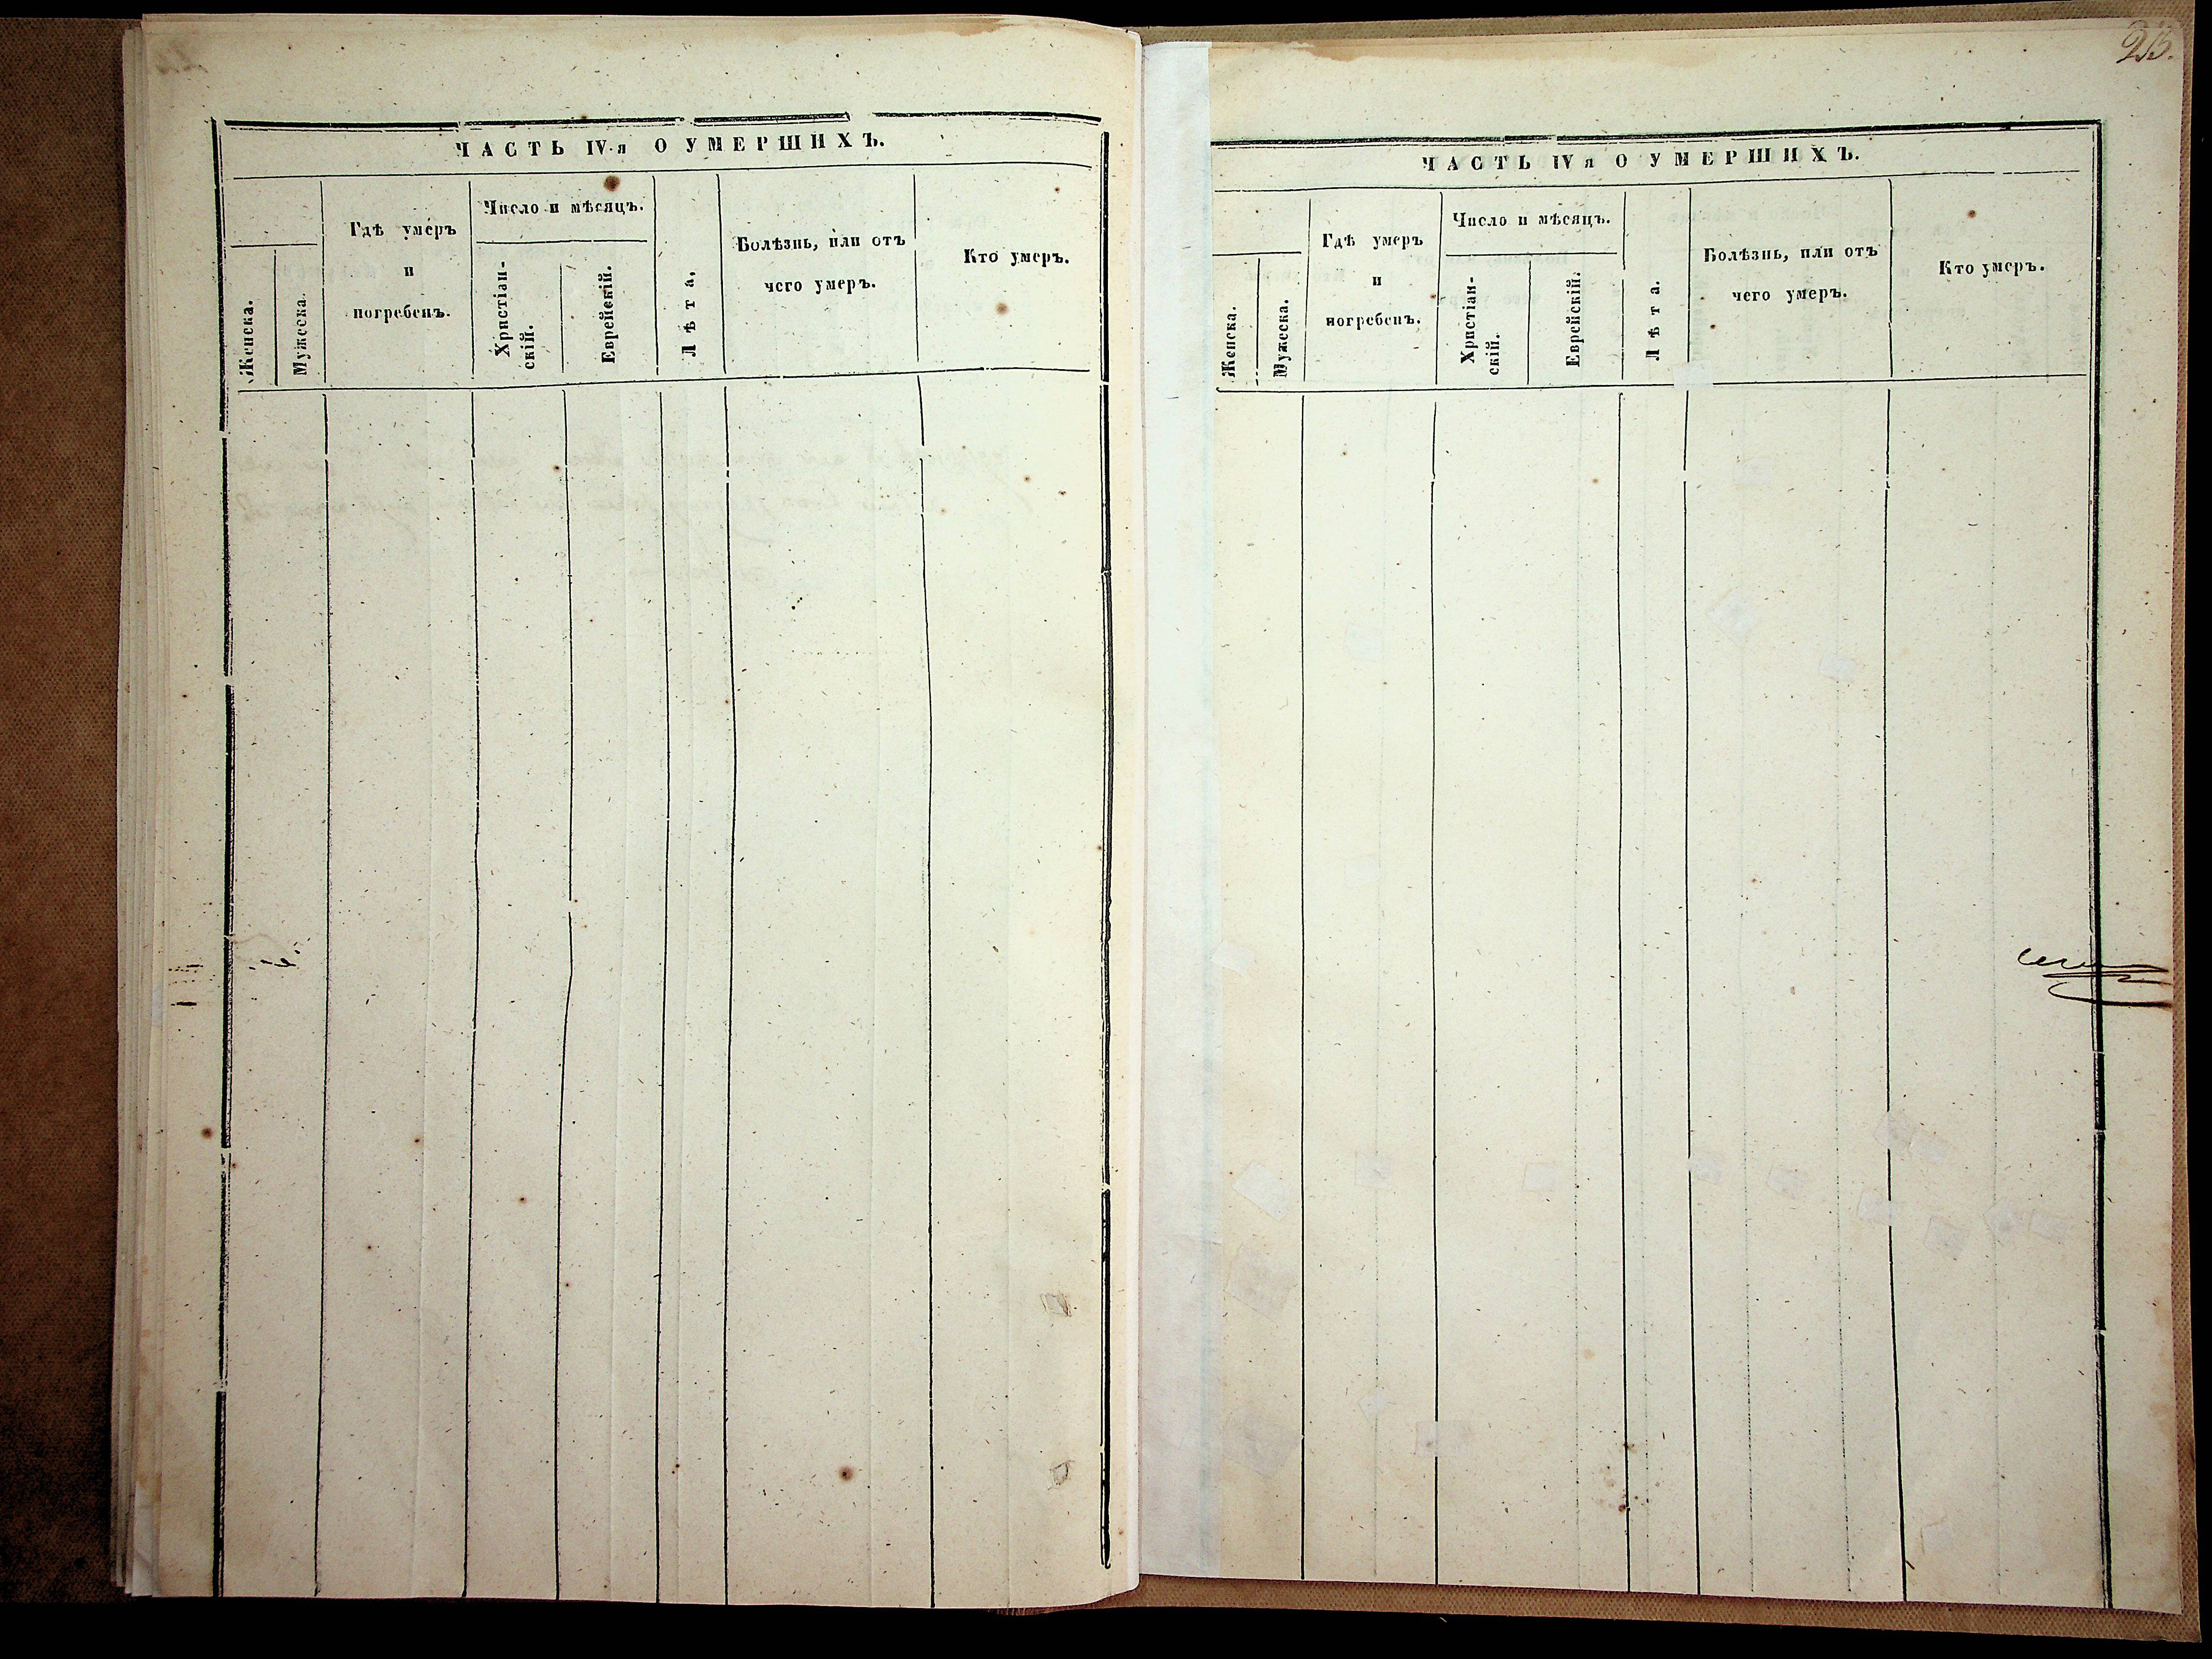 ЧАСТЬ IV-я О УМЕРШИХЪ.
Женска.
Мужеска.
Гдѣ умеръ
и
погребенъ.
Число и мѣсяцъ.
Христіан-
скій.
Еврейскій.
Лѣта.
Болѣзнь, или отъ
чего умеръ.
Кто умеръ.
ЧАСТЬ IV я О УМЕРШИХЪ.
Женска.
Мужеска.
Гдѣ умеръ
и
погребенъ.
Число и мѣсяцъ.
Христіан-
скій.
Еврейскій.
Лѣта.
Болѣзнь, или отъ
чего умеръ.
Кто умеръ.